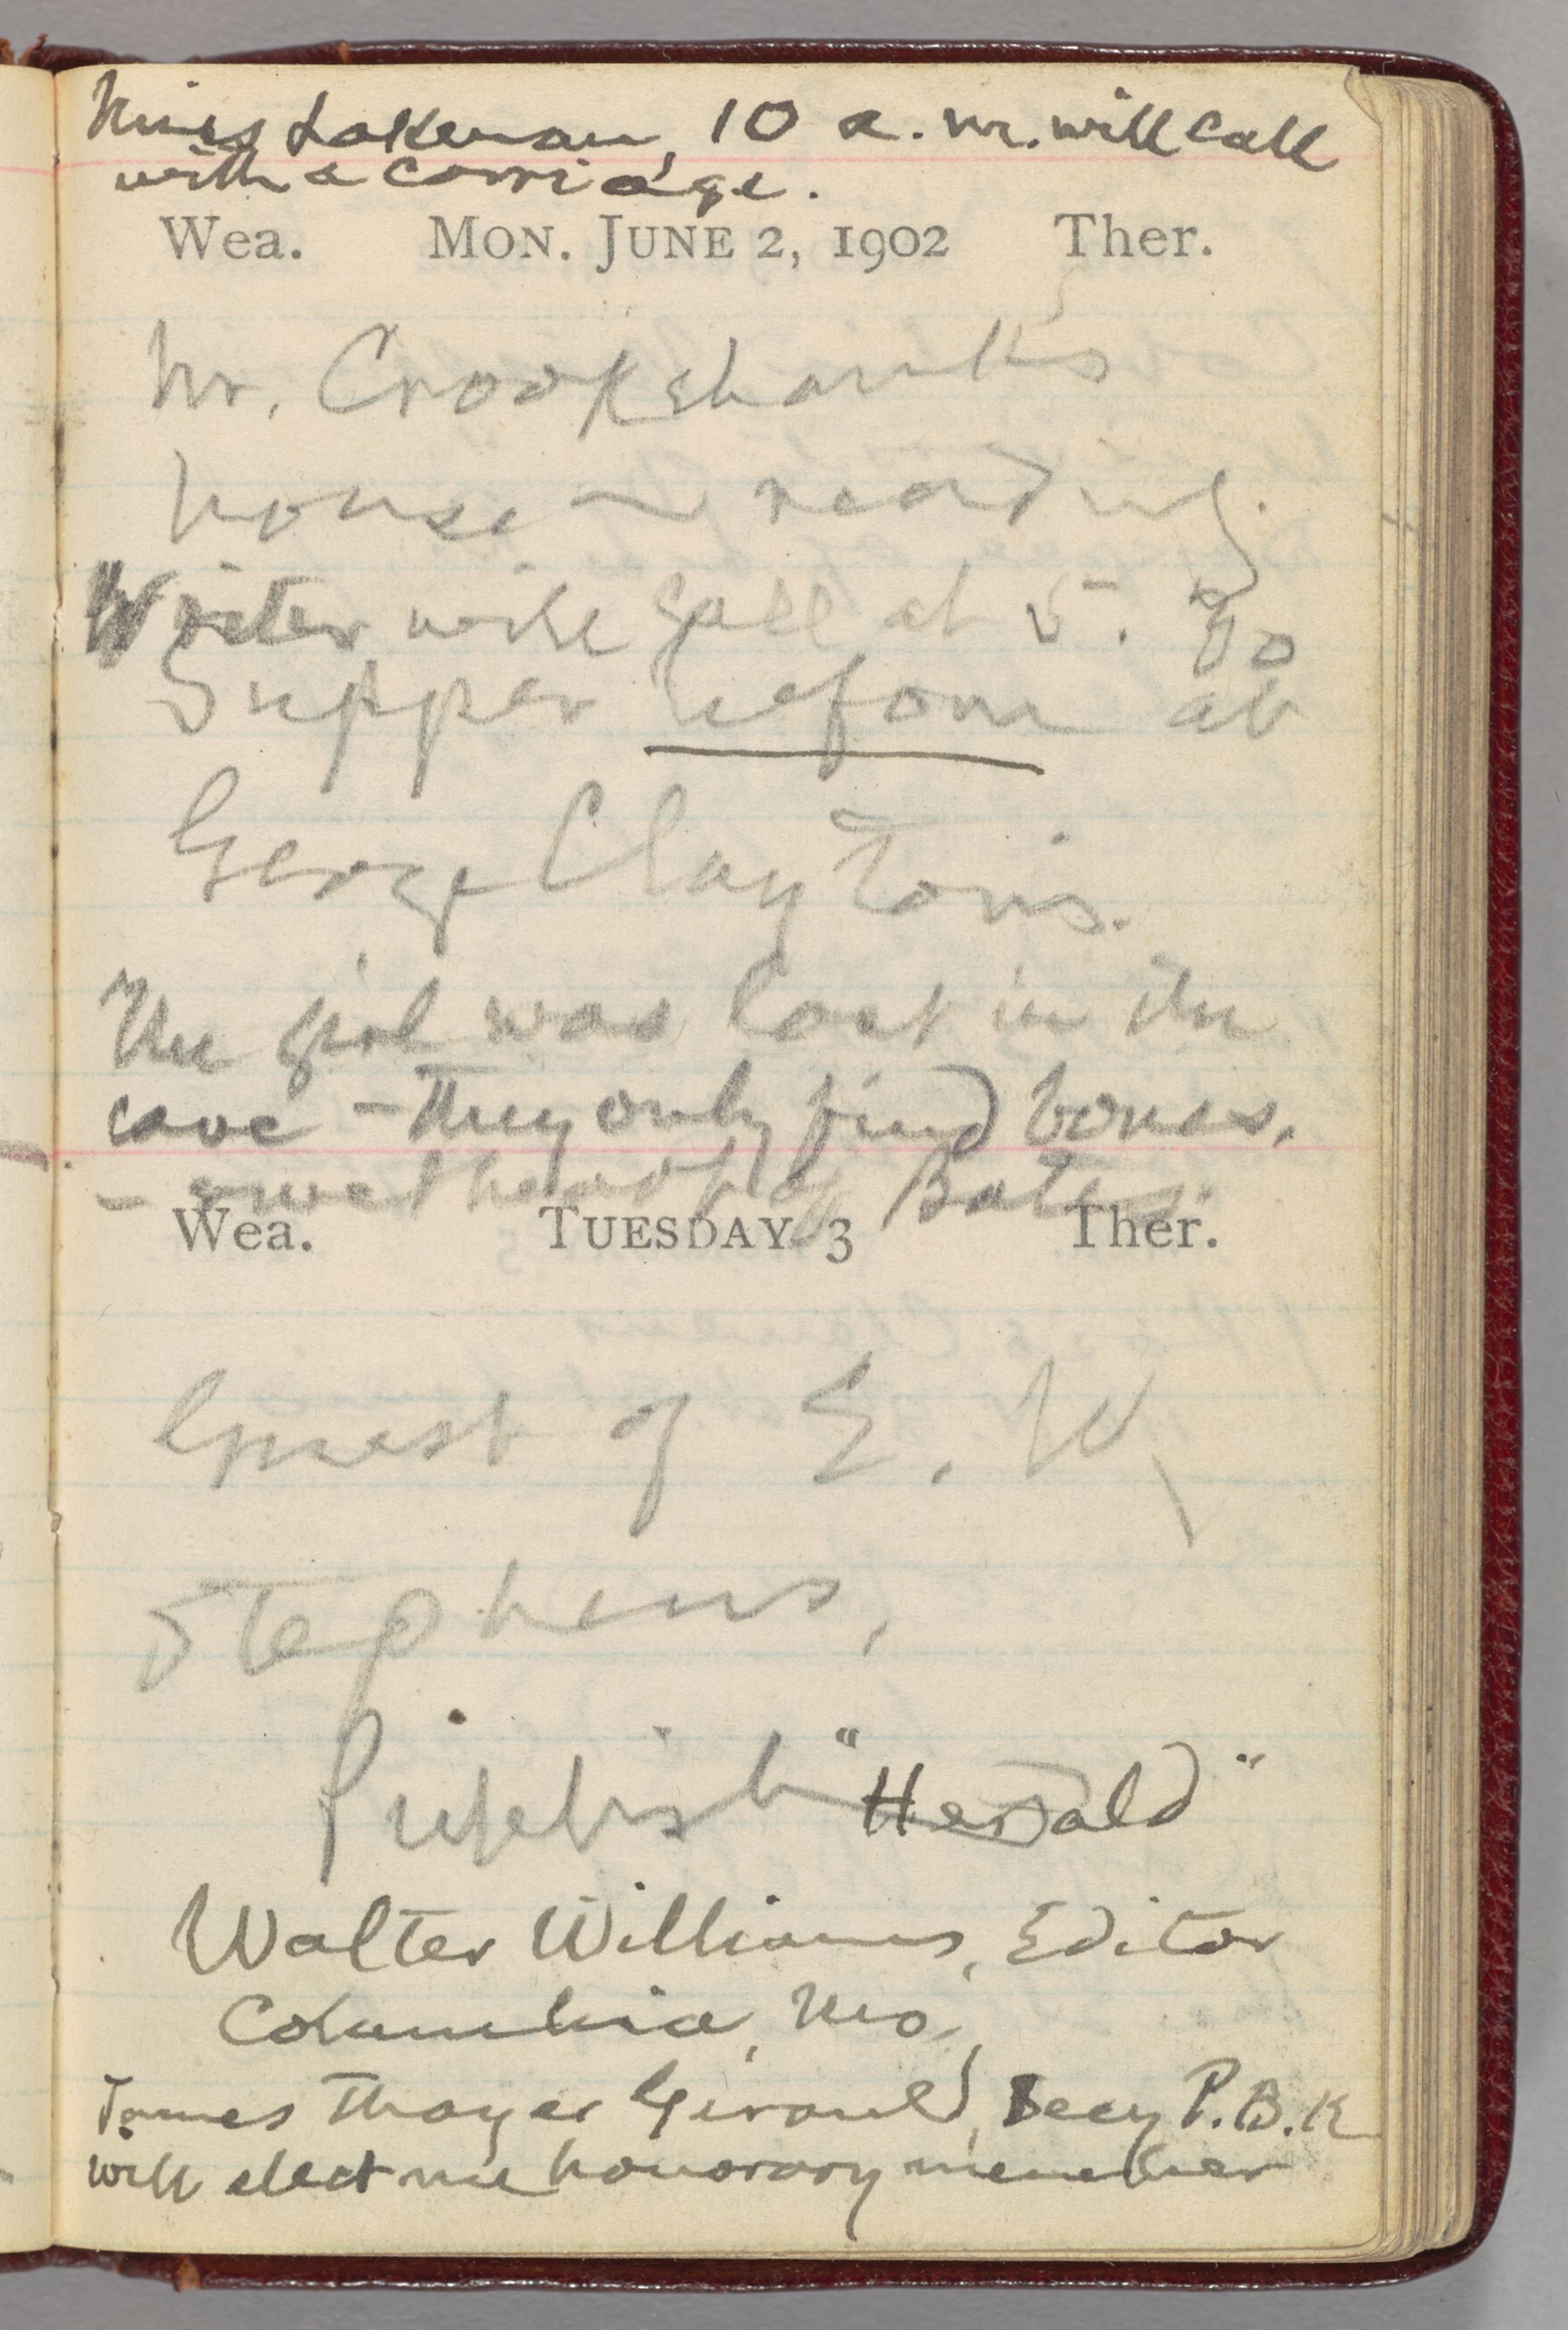 Miss Lakenan, 10 a.m. will call
with a carriage.
Wea. MON. JUNE 2, 1902 Ther.
Mr. Crookshank's
house — reading.
Writer will call at 5.
Supper before at
George Clayton's.
The girl was lost in the
cave — They only find bones.
— sweetheart of Bates.
Wea. TUESDAY 3 Ther.
Guest of E. W.
Stephens,
Publish "Herald"
Walter Williams, Editor
Columbia, Mo.,
James Thayer Gerould, Secy P.B.K
will elect me honorary member